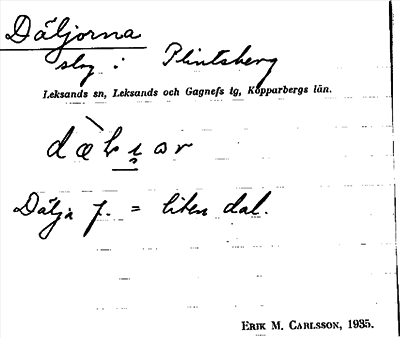 Däljorna
slog i Plintsberg
Leksands sn, Leksands och Gagnefs tg, Kopparbergs län.
Dälja f. = liten dal.
ERIK M. CARLSSON, 1935.